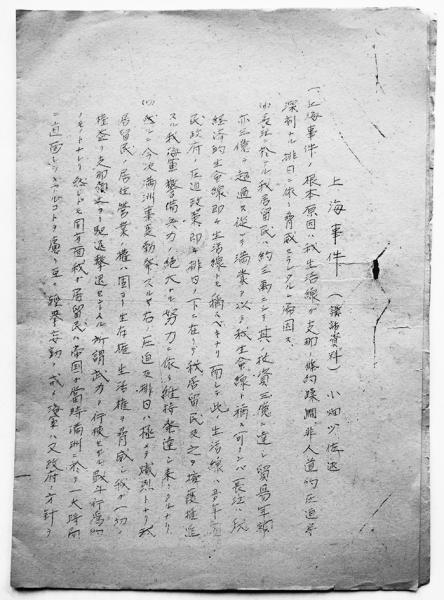 上海事件（講話資料）小畑少佐述
一、上海事件ノ根本原因ハ我生活線ガ支那ノ條約蹂躙、非人道的圧迫
深刻ナル排日ニ依リ脅威セラレタルニ因ス、
我居留民ハ約三萬ニシテ其投資三億ニ達シ貿易年額
亦三億ヲ超過ス従ッテ満蒙ヲ以テ我生命線ト稱ス可クンバ長江ハ我
経済的生命線即チ生活線ト稱スベキナリ而シテ此ノ生活線ハ
民政府ノ圧迫政策即チ排日ノ下ニ在リテ我居留民及之ヲ擁護推進
スル我海軍警備兵力ノ絶大ナル努力ニ依リ維持発達シ来リタルナリ、
然ルニ今次満洲事変勃発スルヤ右ノ圧迫及排日ハ極メテ熾烈トナリ我
居留民ノ居住営業ノ権ハ固ヨリ生存権生活権ヲ脅威シ我ガ一切ノ
権益ヲ支那領土ヨリ駆逐撃退セントスル所謂武力ヲ行使セザル戦争行為
ノモノトナレリ 然レドモ同方面我ガ居留民ハ帝国ガ當時満洲ニ於テ一大時局
ニ直面シツヽアルコトヲ慮リ互ニ軽挙妄動ヲ戒メ海軍ハ又政府ノ方針ヲ